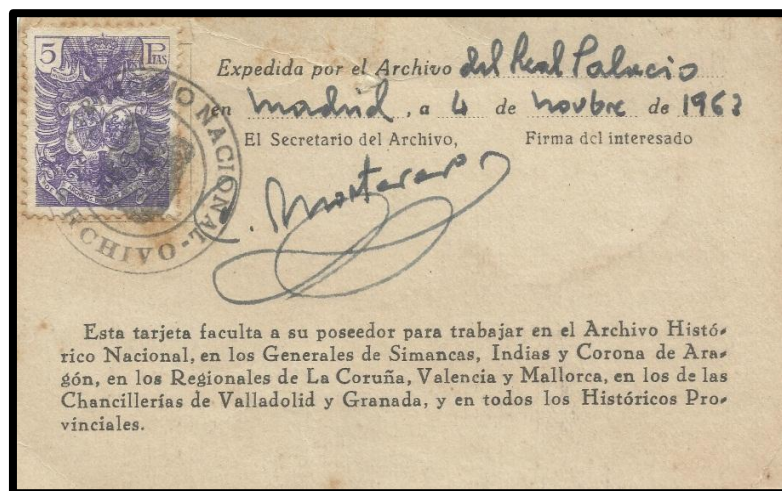 5 PTAS
Expedida por el Archivo del Real Palacio
en Madrid, a 4 de novbre de 1963
El Secretario del Archivo, Firma del interesado
PATRIMONIO NACIONAL
ARCHIVO-
Esta tarjeta faculta a su poseedor para trabajar en el Archivo Histó-
rico Nacional, en los Generales de Simancas, Indias y Corona de Ara-
gón, en los Regionales de La Coruña, Valencia y Mallorca, en los de las
Chancillerías de Valladolid y Granada, y en todos los Históricos Pro-
vinciales.